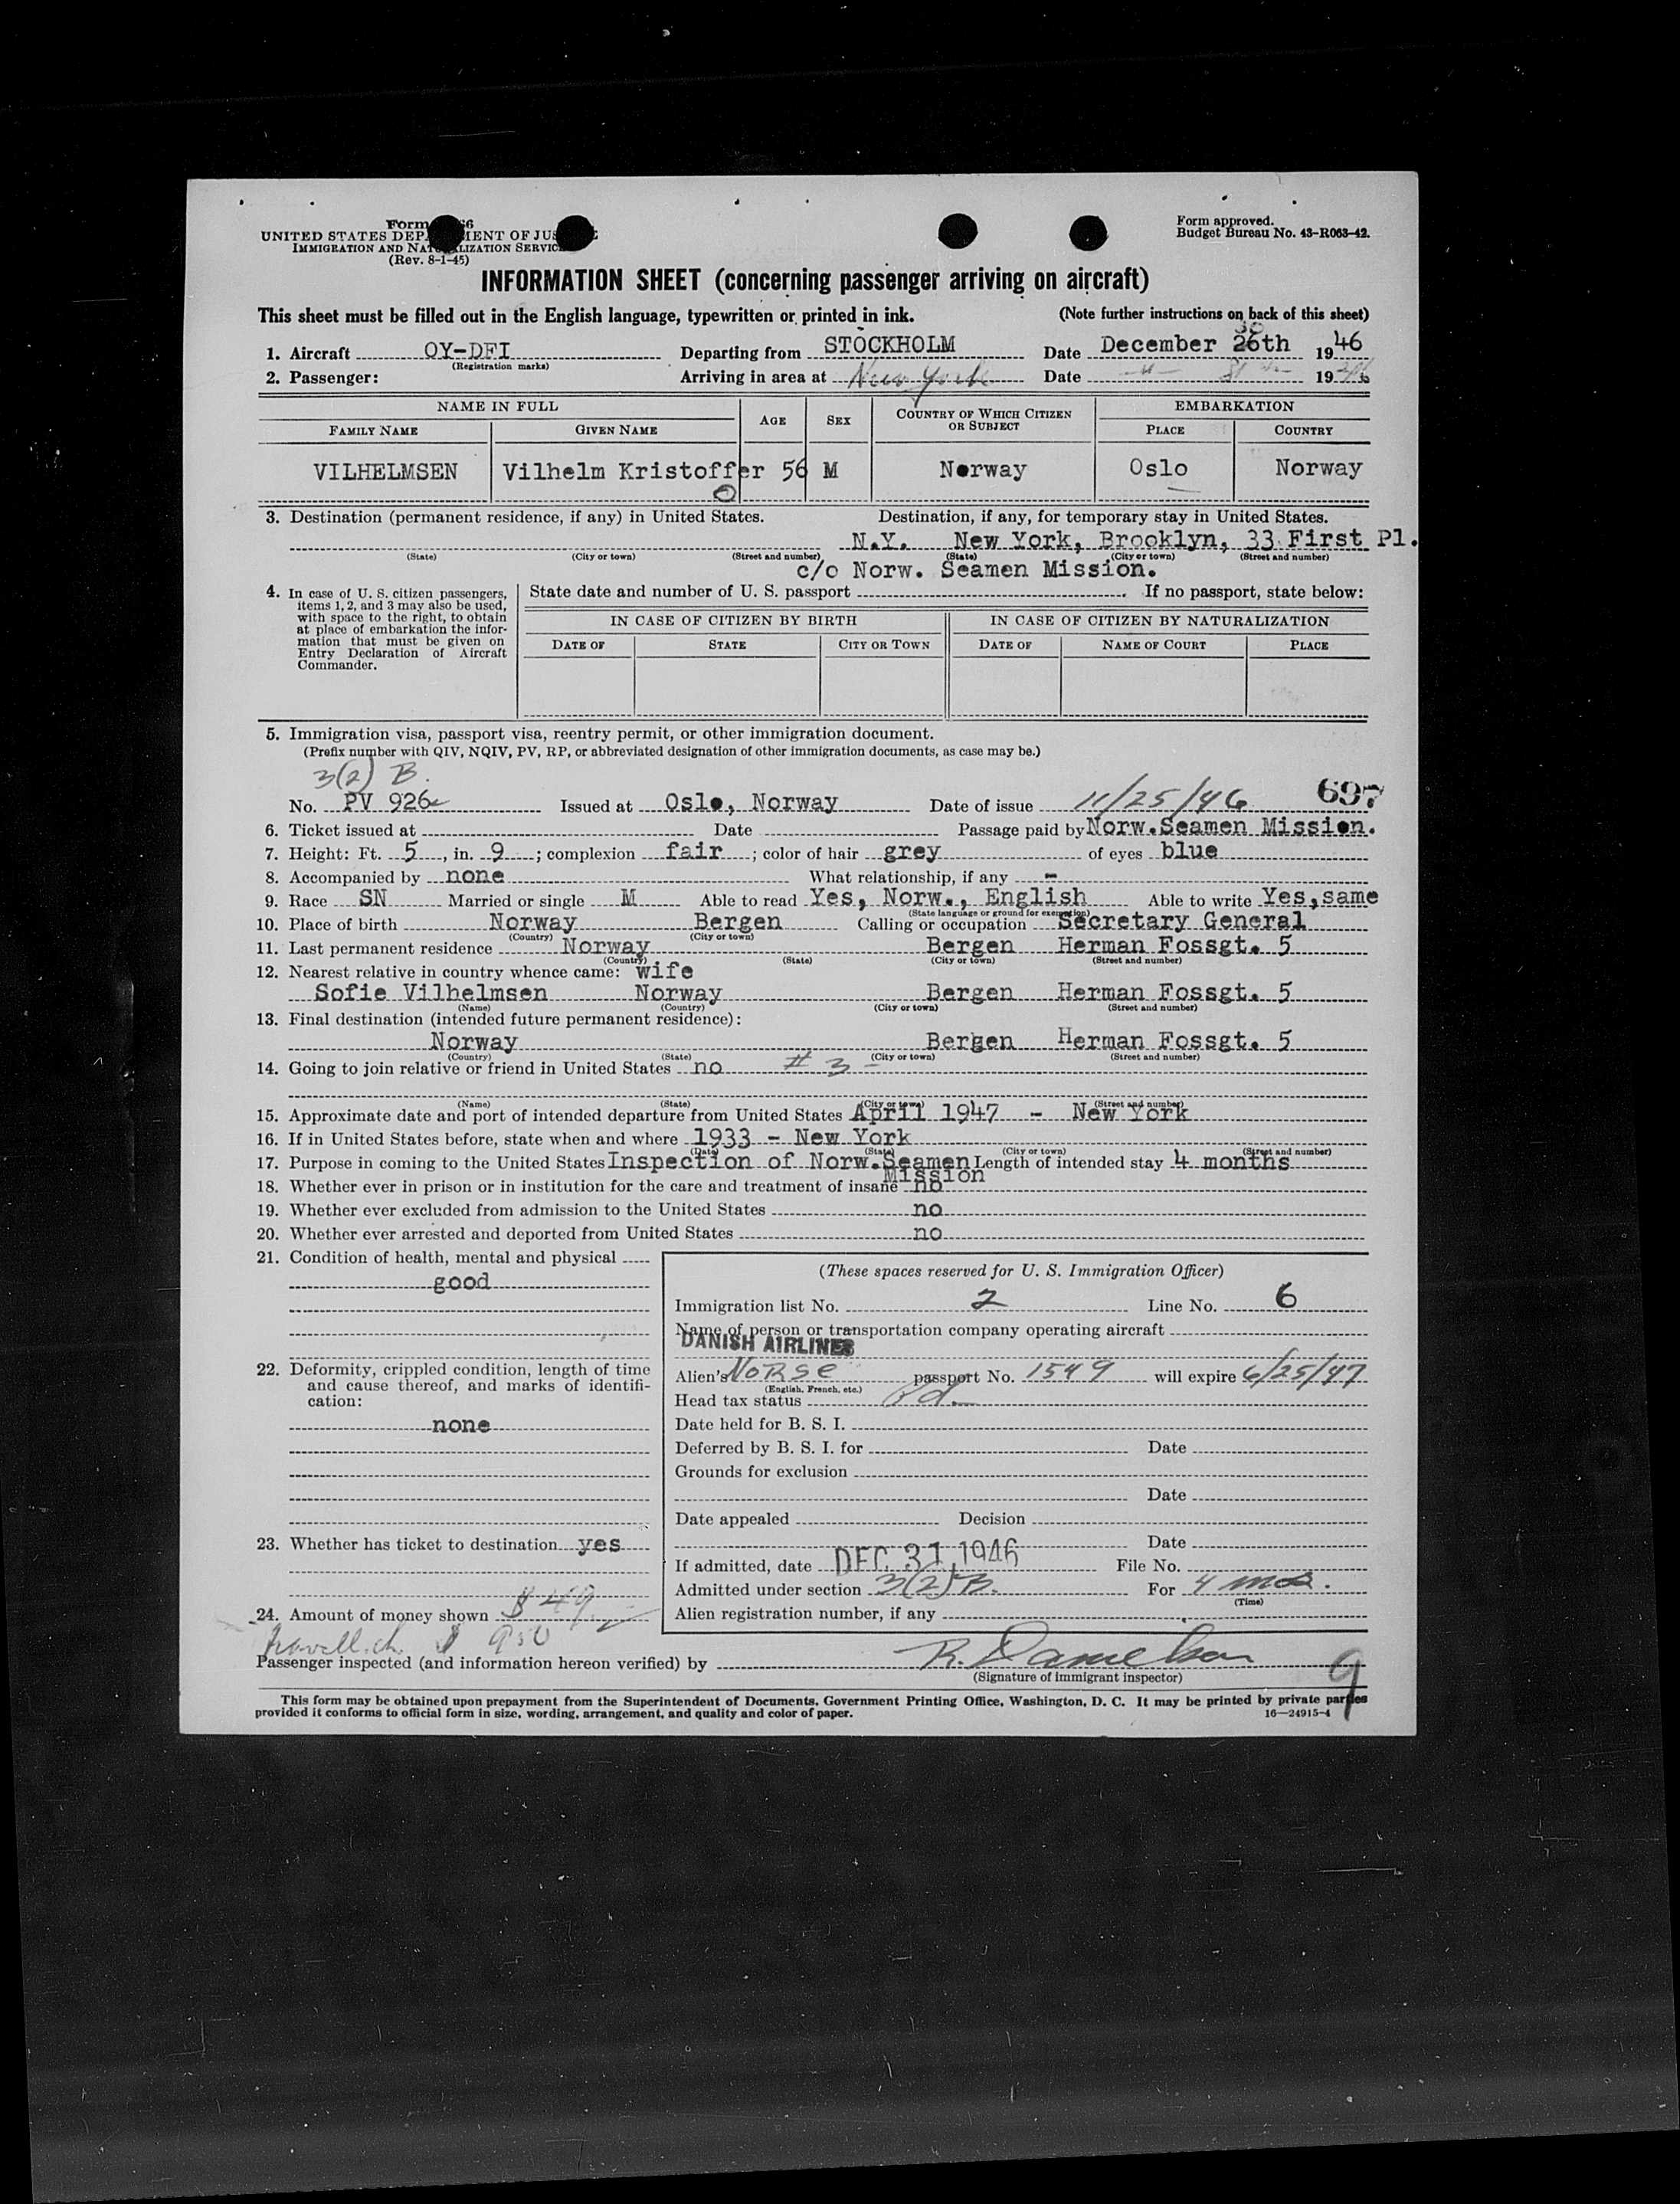 Form 66
UNITED STATES DEP MENT OF JUS
IMMIGRATION AND NAT LIZATION SERVIC
(Rev. 8-1-45)
Form approved.
Budget Bureau No. 43-R063-42.
INFORMATION SHEET (concerning passenger arriving on aircraft)
This sheet must be filled out in the English language, typewritten or printed in ink. (Note further instructions on back of this sheet)
30
1. Aircraft OY-DFI Departing from STOCKHOLM Date December 26th 1946
(Registration marks)
2. Passenger: Arriving in area at New York Date " 31 1946
NAME IN FULL AGE SEX COUNTRY OF WHICH CITIZEN OR SUBJECT EMBARKATION
FAMILY NAME GIVEN NAME PLACE COUNTRY
VILHELMSEN Vilhelm Kristoffer 56 M Norway Oslo Norway
3. Destination (permanent residence, if any) in United States. Destination, if any, for temporary stay in United States.
N.Y. New York, Brooklyn, 33 First Pl.
(State) (City or town) (Street and number) (State) (City or town) (Street and number)
c/o Norw. Seamen Mission.
4. In case of U. S. citizen passengers, items 1, 2, and 3 may also be used, with space to the right, to obtain at place of embarkation the information that must be given on Entry Declaration of Aircraft Commander.
State date and number of U. S. passport . If no passport, state below:
IN CASE OF CITIZEN BY BIRTH IN CASE OF CITIZEN BY NATURALIZATION
DATE OF STATE CITY OR TOWN DATE OF NAME OF COURT PLACE
5. Immigration visa, passport visa, reentry permit, or other immigration document.
(Prefix number with QIV, NQIV, PV, RP, or abbreviated designation of other immigration documents, as case may be.)
3(2) B.
No. PV 926 Issued at Oslo, Norway Date of issue 11/25/46 697
6. Ticket issued at Date Passage paid by Norw.Seamen Mission.
7. Height: Ft. 5, in. 9; complexion fair; color of hair grey of eyes blue
8. Accompanied by none What relationship, if any -
9. Race SN Married or single M Able to read Yes, Norw., English Able to write Yes,same
(State language or ground for exemption)
10. Place of birth Norway Bergen Calling or occupation Secretary General
(Country) (City or town)
11. Last permanent residence Norway Bergen Herman Fossgt. 5
(Country) (State) (City or town) (Street and number)
12. Nearest relative in country whence came: wife
Sofie Vilhelmsen Norway Bergen Herman Fossgt. 5
(Name) (Country) (City or town) (Street and number)
13. Final destination (intended future permanent residence):
Norway Bergen Herman Fossgt. 5
(Country) (State) (City or town) (Street and number)
14. Going to join relative or friend in United States no # 3 -
(Name) (State) (City or town) (Street and number)
15. Approximate date and port of intended departure from United States April 1947 - New York
16. If in United States before, state when and where 1933 - New York
(Date) (State) (City or town) (Street and number)
17. Purpose in coming to the United States Inspection of Norw.Seamen Length of intended stay 4 months
Mission
18. Whether ever in prison or in institution for the care and treatment of insane no
19. Whether ever excluded from admission to the United States no
20. Whether ever arrested and deported from United States no
21. Condition of health, mental and physical
good
22. Deformity, crippled condition, length of time and cause thereof, and marks of identification:
none
23. Whether has ticket to destination yes
24. Amount of money shown $ 49
Travell. ch. $ 950
(These spaces reserved for U. S. Immigration Officer)
Immigration list No. 2 Line No. 6
Name of person or transportation company operating aircraft
DANISH AIRLINES
Alien's Norse passport No. 1549 will expire 6/25/47
(English, French, etc.)
Head tax status Pd.
Date held for B. S. I.
Deferred by B. S. I. for Date
Grounds for exclusion
Date
Date appealed Decision
Date
If admitted, date DEC 31 1946 File No.
Admitted under section 3(2)B. For 4 mos.
(Time)
Alien registration number, if any
Passenger inspected (and information hereon verified) by R. Danielson
(Signature of immigrant inspector)
9
This form may be obtained upon prepayment from the Superintendent of Documents, Government Printing Office, Washington, D. C. It may be printed by private parties
provided it conforms to official form in size, wording, arrangement, and quality and color of paper. 16—24915-4